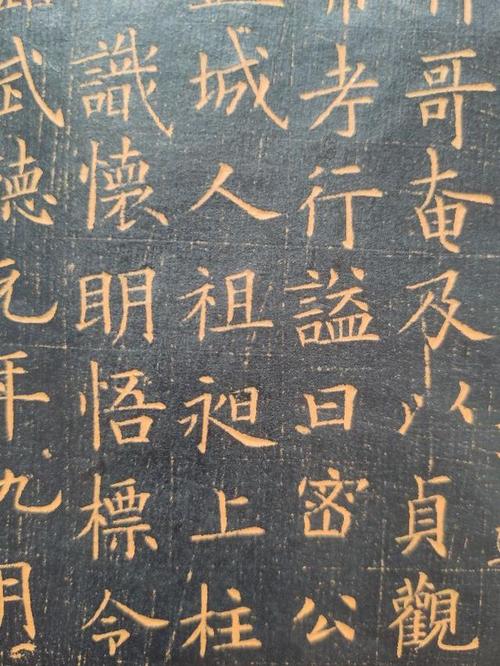 哥奄及以貞觀
考行謚曰密公
城人祖昶上柱
識懷明悟標令
武德元年九月